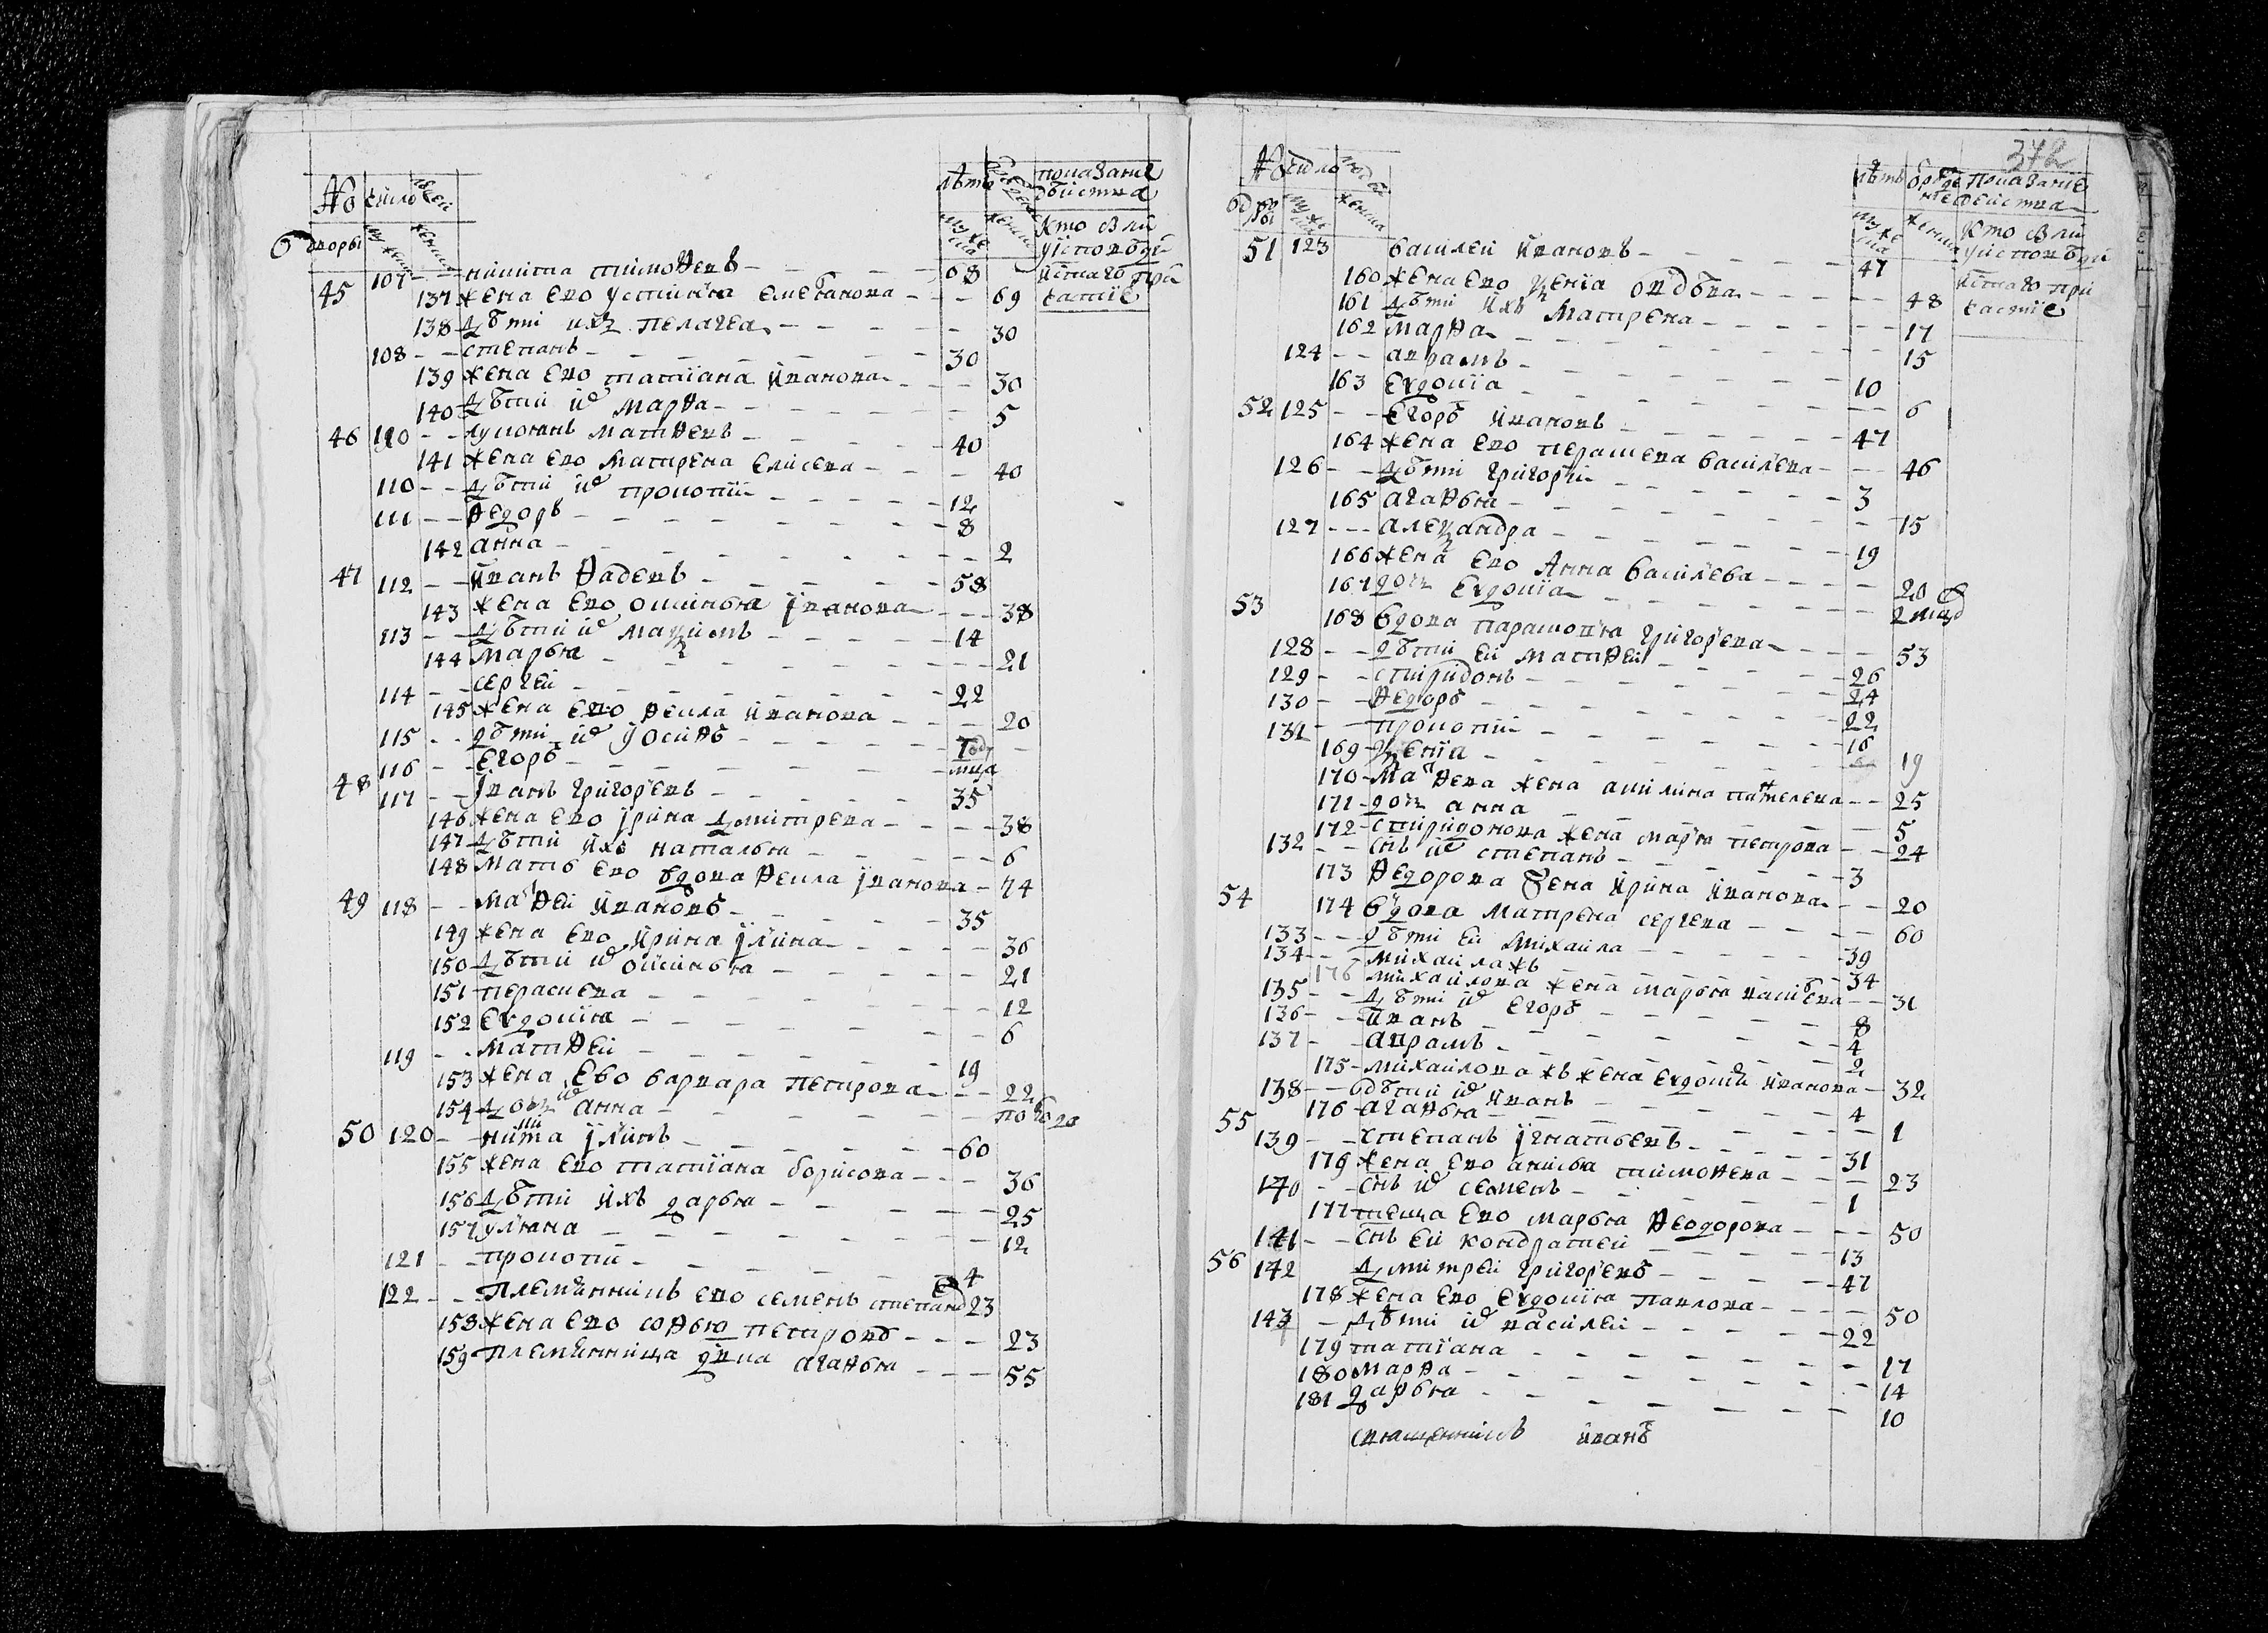 № число людей лѣтъ показание действа
дворы мужеска женска мужеска женска кто былъ у исповеди и св~таго причастие
45 107 – – никита тимоѳеевъ – 68
137 жена ево устинья емельянова – 69
138 дѣти ихъ пелагея – 30
108 – – степанъ – 30
139 жена ево татиана иванова – 30
140 дѣти ихъ марѳа – 5
46 190 – – лукоянъ матѳеевъ – 40
141 жена ево матрена елисеева – 40
110 – – дѣти ихъ прокопій – 12
111 – – ѳедоръ – 8
142 анна – 2
47 112 – – иванъ ѳадеевъ – 58
143 жена ево оксинья іванова – 38
113 – – дѣти ихъ маѯимъ – 14
144 марья – 21
114 – – сергеи – 22
145 жена ево ѳекла иванова – 20
115 – – дѣти ихъ іосифъ – 1 год
116 – – егоръ – мца
48 117 – – іванъ григорьевъ – 35
146 жена ево ірина дмитрева – 38
147 дѣти ихъ наталья – 6
148 мать ево вдова ѳекла іванова – 74
49 118 – – матѳеи ивановъ – 35
149 жена ево ирина ілина – 36
150 дѣти ихъ оксинья – 21
151 пераскева – 12
152 евдокия – 6
119 – – матѳеи – 19
153 жена ево варвара петрова – 22
154 дочь ихъ анна – полгода
50 120 – – никита ілинъ – 60
155 жена ево татиана борисова – 36
156 дѣти ихъ дарья – 25
157 улияна – 12
121 – – прокопи – 4
122 – – племянникъ ево семенъ степановъ 23
158 жена ево софья петрова – 23
159 племянница девка агаѳья – 55
372
№ число людей лѣтъ показание действа
дворы мужеска женска мужеска женска кто былъ у исповеди и св~таго причастие
51 123 василеи ивановъ – 47
160 жена ево ѯения – 48
161 дѣти ихъ матрена – 17
162 марѳа – 15
124 – – аврамъ – 10
163 евдокиа – 6
52 125 – – егоръ ивановъ – 47
164 жена ево пераскева василева – 46
126 – – дѣти григорей – 3
165 агаѳья – 15
127 – – – алеѯандра – 19
166 жена ево анна василева – 20
167 дочь евдокиа – 2 мца
53 168 вдова парасковья григорева – 53
128 – – дѣти еи матѳеи – 26
129 – – спиридонъ – 24
130 – – ѳедоръ – 22
131 – – прокопи – 16
169 ѯения – 19
170 маѳеева жена акилина пателева – 25
171 дочь анна – 5
172 спиридонова жена марья петрова – 24
132 – – снъ ихъ степанъ – 3
173 ѳедорова жена ирина иванова – 20
54 174 вдова матрена сергева – 60
133 – – дѣти еи михаила – 39
134 – – михаила жъ – 34
176 михаилова жена марья – 31
135 – – дѣти ихъ егоръ – 8
136 – – иванъ – 4
137 – – аврамъ – 2
175 – михаилова жъ жена евдокия иванова – 32
138 – – дѣти ихъ иванъ – 4
176 – агаѳья – 1
55 139 – – степанъ ігнатьевъ – 31
176 жена ево анисья тимоѳева – 23
140 – – снъ ихъ семенъ – 1
177 теща ево марья ѳеодорова – 50
141 – – снъ еи кондратеи – 13
56 142 дмитреи григоревъ – 47
178 жена ево евдокия павлова – 50
143 – дѣти ихъ василеи – 22
179 татиана – 17
180 марѳа – 14
181 дарья – 10
священникъ иванъ